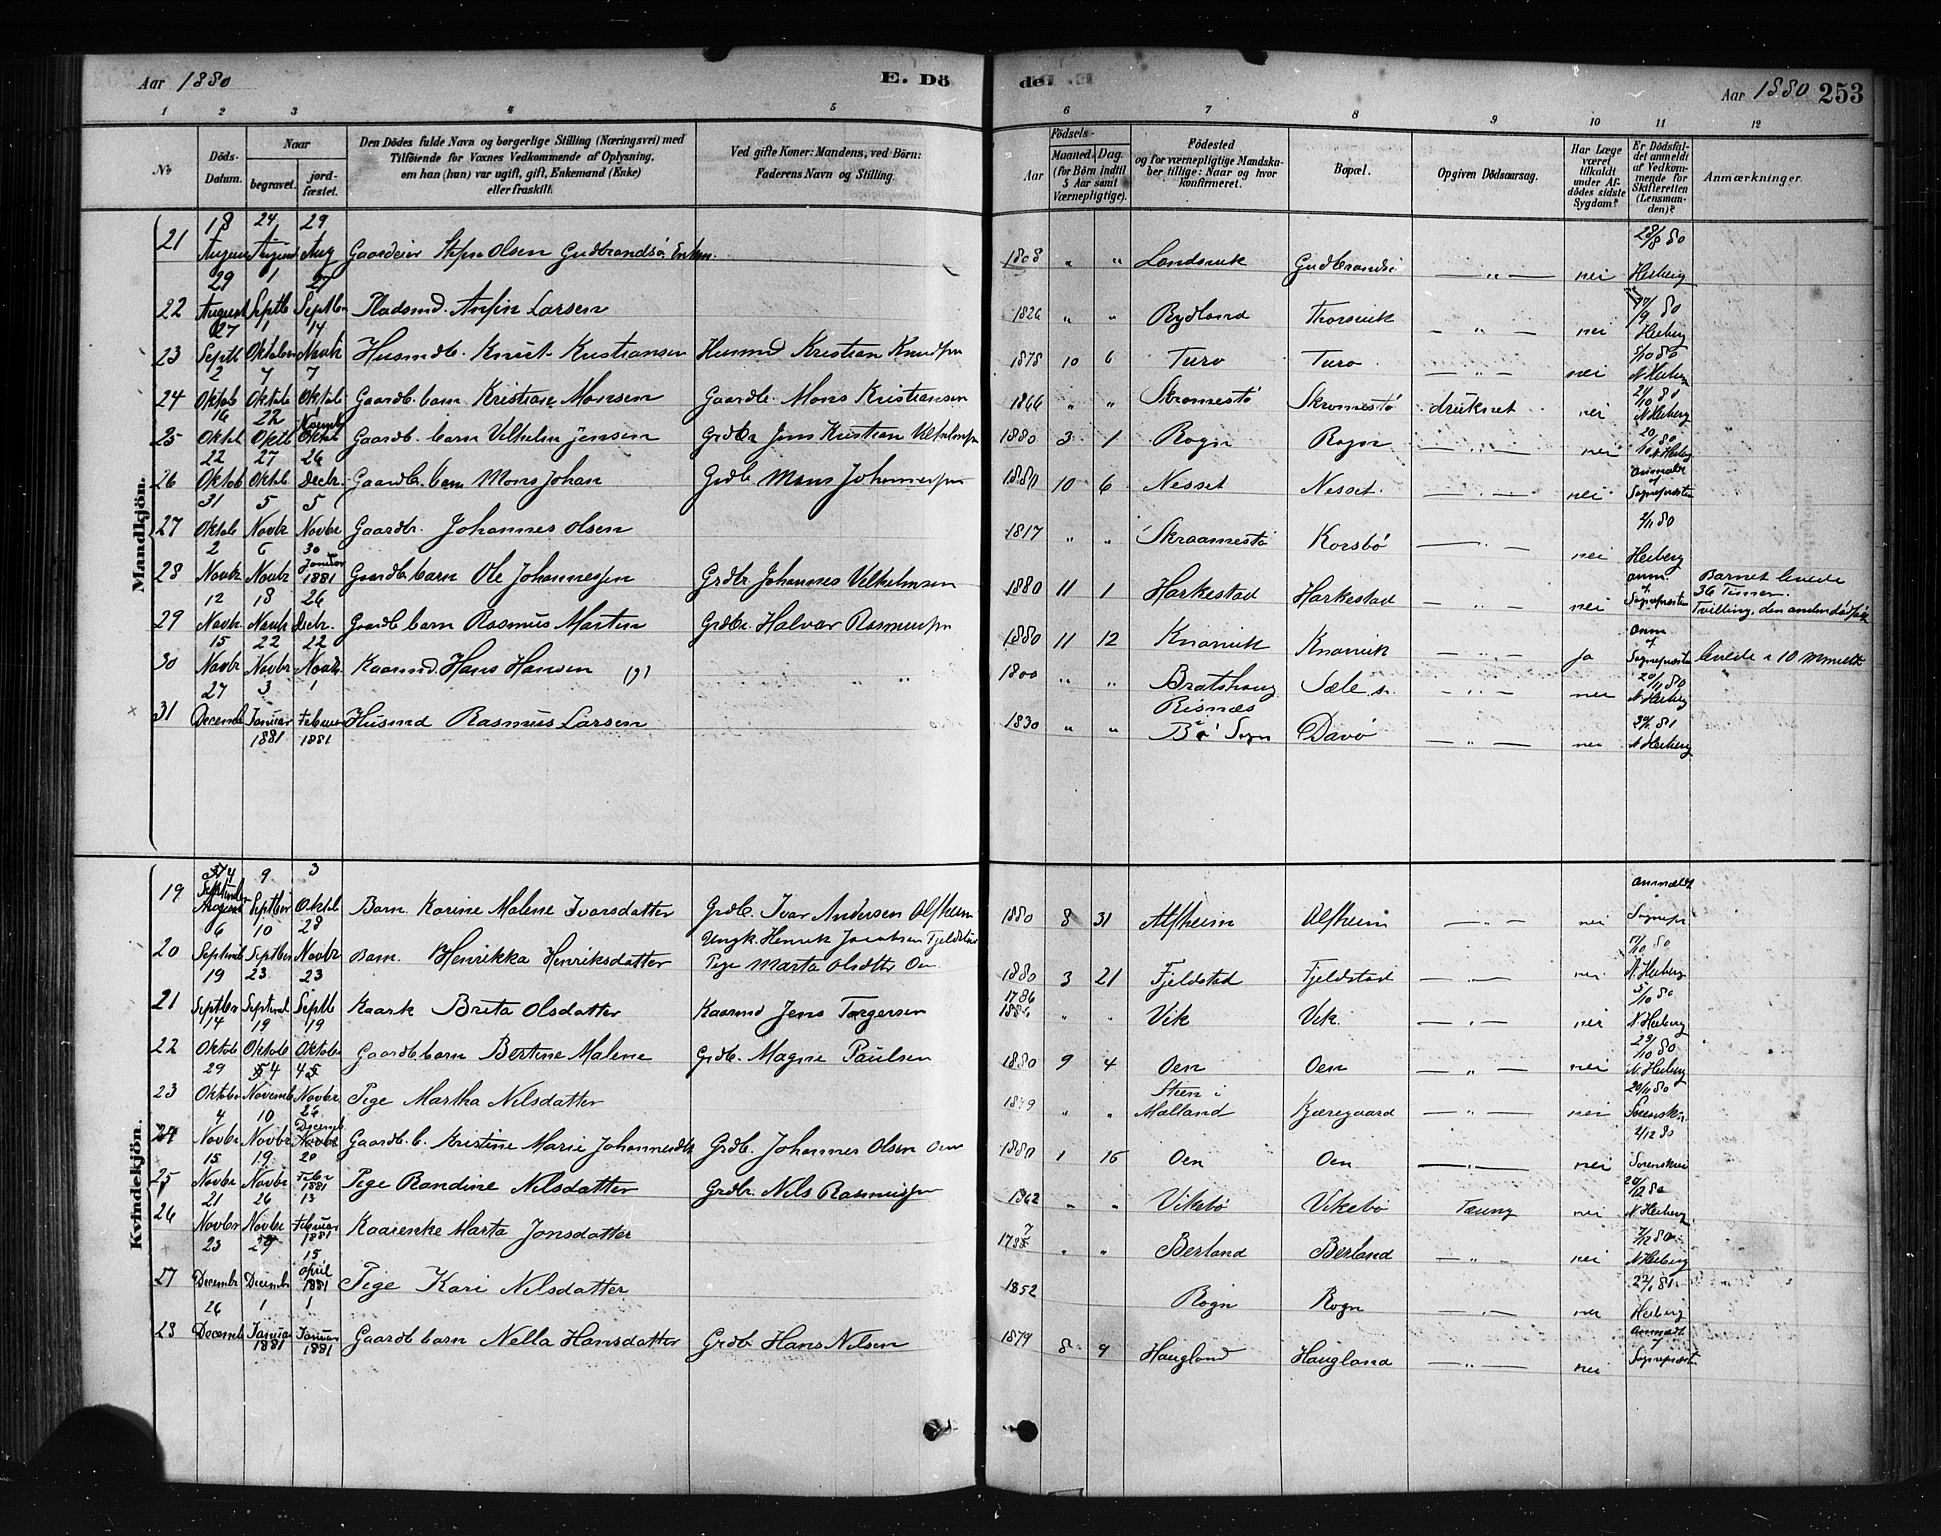 Aar 1880 E. Dö de. Aar 1880 253
1 2 3 4 5 6 7 8 9 10 11 12
№ Döds-Datum. Naar begravet. jordfæstet. Den Dödes fulde Navn og borgerlige Stilling (Næringsvei) med Tilföiende for Voxnes Vedkommende af Oplysning, om han (hun) var ugift, gift, Enkemand (Enke) eller fraskilt. Ved gifte Koner: Mandens, ved Börn: Faderens Navn og Stilling. Födsels- Aar Maaned. Dag. (for Börn indtil 5 Aar samt Værnepligtige). Födested og for værnepligtige Mandskaber tillige: Naar og hvor konfirmeret. Bopæl. Opgiven Dödsaarsag. Har Læge været tilkaldt under Afdödes sidste Sygdom? Er Dödsfaldet anmeldt af Vedkommende for Skifteretten (Lensmanden)? Anmærkninger.
Mandkjön.
21 18 August 24 August 29 Aug Gaardeier Olsen Gudbrandsö Enkem. 1808 " " Landsvik Gudbrandsö — " — nei 28/8 80 Heiberg
22 29 August 1 Septb 27 Septbr Pladsmd. Anfin Larsen 1826 " " Rydland Thorsvik — " — nei 17/9 80 Heiberg
23 27 Septb 1 Oktober 14 Novbr Husmdb. Knut Kristiansen Husmd Kristian Knudsen 1878 10 6 Turo Turo — " — nei 5/10 80 N Heiberg
24 2 Oktob 7 Oktob 7 Oktob Gaardb. barn Kristian Monsen Gaardb. Mons Kristiansen 1866 " " Skromestö Skromestö druknet nei 21/10 80 N Heiberg
25 16 Oktob 22 Oktb Novmb Oktb Gaardb. barn Vilhelm Jensen Grdbr Jens Kristian Vilhelmsen 1880 3 1 Rogn Rogn — " — nei 20/10 80 N. Heiberg
26 22 Oktob 27 Oktb 26 Decbr. Gaardb. barn Mons Johan Grdb. Mons Johannessen 1880 10 6 Nesset Nesset. — " — nei anmeldt af Sognepresten
27 31 Oktob 5 Novbr 5 Novbr Gaardbr. Johannes Olsen 1817 " " Skraamestö Korsbö — " — nei 2/11 80 Heiberg
28 2 Novbr 6 Novbr 30 Januar 1881 Gaardb. barn Ole Johannessen Grdbr. Johannes Vilhelmsen 1880 11 1 Harkestad Harkestad — " — nei anm. af Sognepresten Barnet levede 36 Timer. Tvilling, den anden dödfödt
29 12 Novbr. 18 Novbr 26 Decbr. Gaardb barn Rasmus Martin Grdbr. Halvar Rasmussen 1880 11 12 Knarvik Knarvik — " — ja anm af Sognepresten levede i 10 Minutter
30 15 Novbr 22 Novbr 22 Novbr. Kaarmd. Hans Hansen (g) 1800 " " Bratshaug Risnæs Sæle s. — " — nei 20/11 80 N. Heiberg
31 27 Decemb 3 Januar 1881 1 Februar 1881 Husmd Rasmus Larsen 1830 " " Bö Sogn Davö — " — nei N Heiberg
Kvindekjön.
19 4 September August 9 Septbr 3 Oktob Barn Karine Malene Ivarsdatter Grdb. Ivar Andersen Alfheim 1880 8 31 Alfheim Alfheim — " — nei anmeldt Sognepr.
20 6 Septemb 10 Septber 28 Novbr Barn. Henrikka Henriksdatter Ungk. Henrik Jacobsen Fjeldstad Pige Marta Olsdtr Oen 1880 3 21 Fjeldstad Fjeldstad — " — nei 17/10 80 N. Heiberg
21 19 Septbr 23 Septemb 23 Septb Kaark Brita Olsdatter Kaarmd Jens Torgersen 1786 " " Vik Vik. — " — nei 5/10 80 N Heiberg
22 14 Oktob 19 Oktob 19 Oktobr Gaardb. barn Bertine Malene Grdb. Magne Paulsen 1880 9 4 Oen Oen — " — nei 23/10 80 N. Heiberg
23 29 Oktober 4 Novemb 5 Novbr Pige Martha Nilsdatter " " Steen i Matland Kjæregaard — " — nei 20/11 80 Sorenskr.
24 4 Novbr 10 Novbr 26 Decemb Novbr Gaardb. b. Kristine Marie Johannesdtr Grdb. Johannes Olsen Oen 1880 1 16 Oen Oen — " — nei 2/12 80 Sorenskri
25 15 Novbr 19 Novbr 20 Febr 1881 Pige Randine Nilsdatter Grdbr. Nils Rasmussen 1862 " " Vikebö Vikebö Tæring nei 20/12 80 N Heiberg
26 21 Novbr 26 Novbr 13 Februar 1881 Kaarenke Marta Jonsdatter " " Berland Berland — " — nei 7/12 80 N Heiberg
27 23 Decembr 29 Decembr 15 April 1881 Pige Kari Nilsdatter 1852 Rogn Rogn — " — nei 22/1 81. Heiberg
28 26 Decemb 1 Januar 1881 1 Januar 1881 Gaardb barn Nella Hansdatter Grdb. Hans Nilsen 1879 8 9 Haugland Haugland — " — nei anmeldt Sognepresten